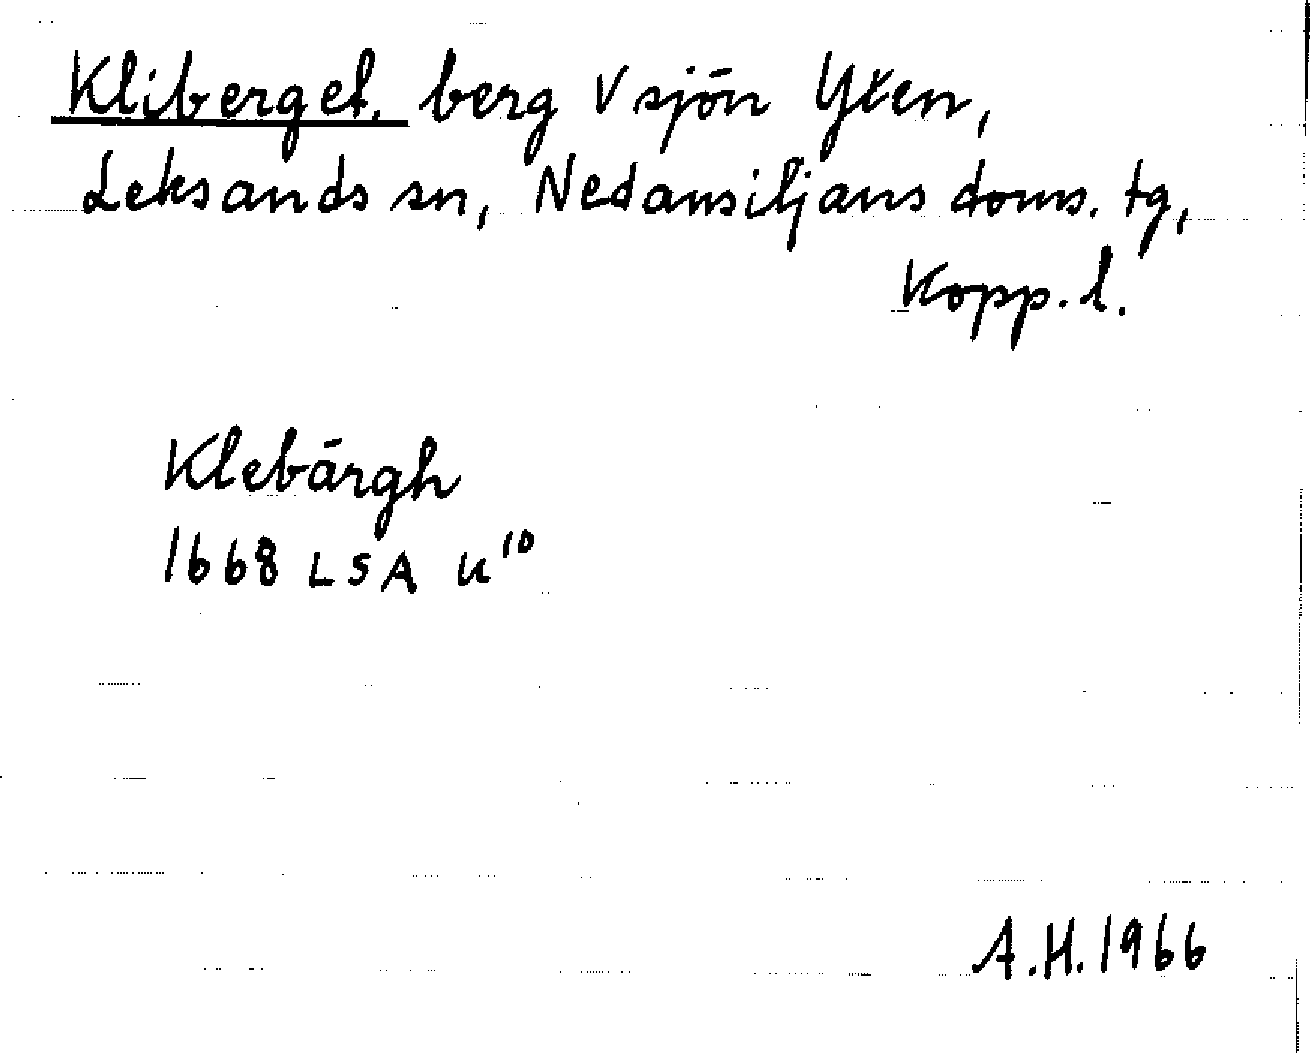 Kliberget. berg V sjön Yxen,
Leksands sn, Nedansiljans doms. tg,
Kopp. l.
Klebärgh
1668 LSA U¹⁰
A.H. 1966